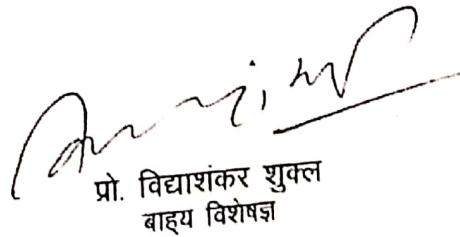 प्रो. विद्याशंकर शुक्ल
बाह्य विशेषज्ञ